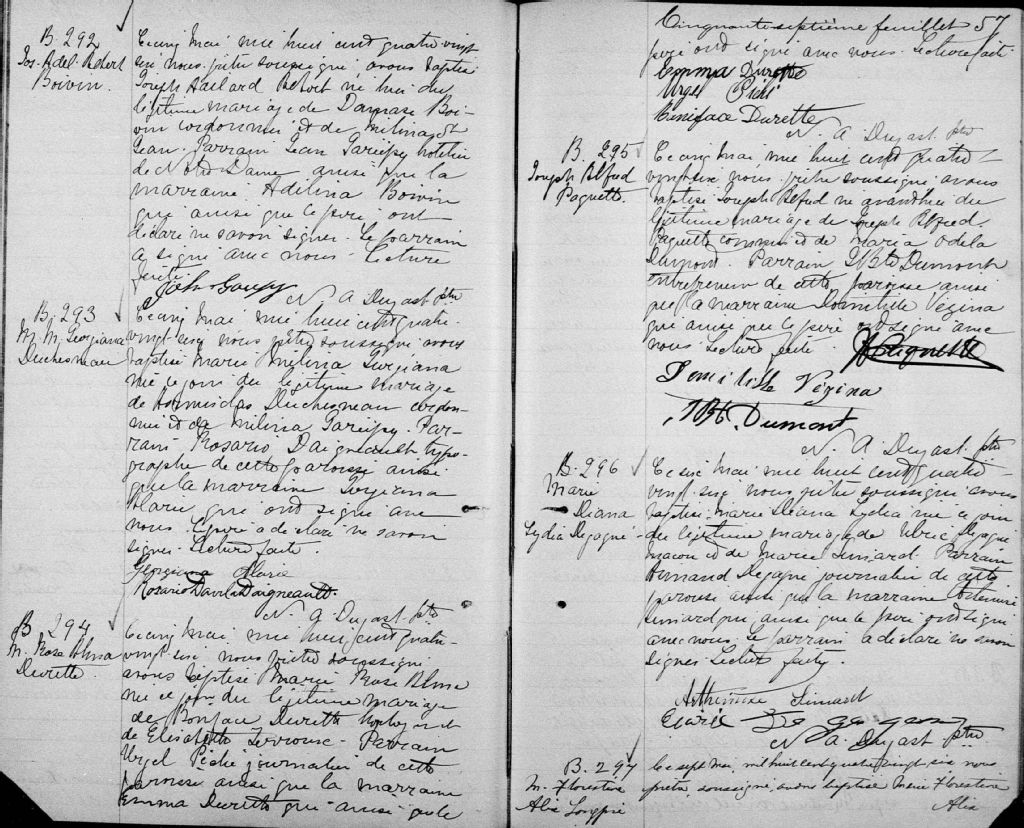 B. 292
Jos. Adel. Robert
Boivin.
Ce cinq Mai mil huit cent quatre vingt
six nous prêtre soussigné, avons baptisé
Joseph Robert né hier du
légitime mariage de Damase Boi-
vin cordonnier et de Melina St
Jean. Parrain Jean Gariépy
de Notre Dame ainsi que la
marraine Adelina Boivin
qui ainsi que le père ont
déclaré ne savoir signer. Le parrain
a signé avec nous. Lecture
faite.
N. A. Dugast ptre
B. 293
M. M. Georgiana
Duchesneau
Ce cinq Mai mil huit cent quatre-
vingt-six nous prêtre soussigné avons
baptisé Marie Melina Georgiana
née ce jour du légitime mariage
de Hormisdas Duchesneau cordon-
nier et de Melina Gariépy. Par-
rain Rosario Daigneault typo-
graphe de cette paroisse ainsi
que la marraine Georgiana
Alarie qui ont signé avec
nous. Le père a déclaré ne savoir
signer. Lecture faite.
Georgiana Alarie
Rosario Davila Daigneault.
N. A. Dugast ptre
B. 294
M. Rose Alma
Durette
Ce cinq Mai mil huit cent quatre-
vingt-six nous prêtre soussigné
avons baptisé Marie Rose Alma
née ce jour du légitime mariage
de Boniface Durette
de Elisabeth Parrain
Urgel Piché journalier de cette
paroisse ainsi que la marraine
Emma Durette qui ainsi que le
Cinquante septième feuillet 57
père ont signé avec nous. Lecture faite
Emma Durette
Urgel Piché
Boniface Durette
N. A. Dugast ptre
B. 295
Joseph Alfred
Paquette.
Ce cinq Mai mil huit cent quatre-
vingt-six nous prêtre soussigné avons
baptisé Joseph Alfred né avanthier du
légitime mariage de Joseph Alfred
Paquette commis et de Maria Odela
Dumont. Parrain J. Bte Dumont
Entrepreneur de cette paroisse ainsi
que la marraine Domitilde Vézina
qui ainsi que le père ont signé avec
nous. Lecture faite. Paquette
Domitilde Vézina
J Bt. Dumont
N. A. Dugast ptre
B. 296
Marie
Diana
Lydia Degagné
Ce six Mai mil huit cent quatre-
vingt-six nous prêtre soussigné avons
baptisé Marie Diana Lydia née ce jour
du légitime mariage de Ulric Degagné
macon et de Marie Simard. Parrain
Armand Degagné journalier de cette
paroisse ainsi que la marraine
Simard qui ainsi que le père ont signé
avec nous, le parrain a déclaré ne savoir
signer. Lecture faite.
Arthémise Simard
N. A. Dugast ptre
B. 297
M. Florestine
Alix
Ce sept Mai, mil huit cent quatre vingt six nous
prêtre, soussigné, avons baptisé Marie Florestine
Alix